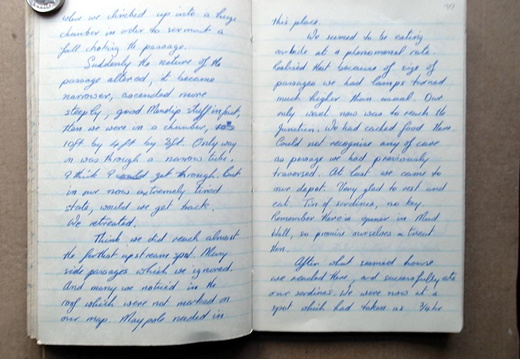 when we climbed up into a huge
chamber in order to surmount a
fall choking the passage.
Suddenly the nature of the
passage altered, it became
narrower, ascended more
steeply, good Mendip stuff in fact,
then we were in a chamber,
10ft by 4ft by 3ft. Only way
on was through a narrow tube.
I think I could get through. but
in our now extremely tired
state, would we get back.
We retreated.
Think we did reach almost
the farthest upstream spot. Many
side passages which we ignored.
And many we noticed in the
roof which were not marked on
our map. Maypole needed in
this place.
We seemed to be eating
carbide at a phenomenal rate.
Realised that because of size of
passages we had lamps turned
much higher than usual. Our
only want now was to reach the
Junction. We had cached food there.
Could not recognise any of cave
as passage we had previously
traversed. At last we came to
our depot. Very glad to rest and
eat. Tin of sardines, no key.
Remember there is spanner in Mud
Hall, so promise ourselves a treat
then.
After what seemed hours
we reached there, and successfully ate
our sardines. We were now at a
spot which had taken us 3/4 hr